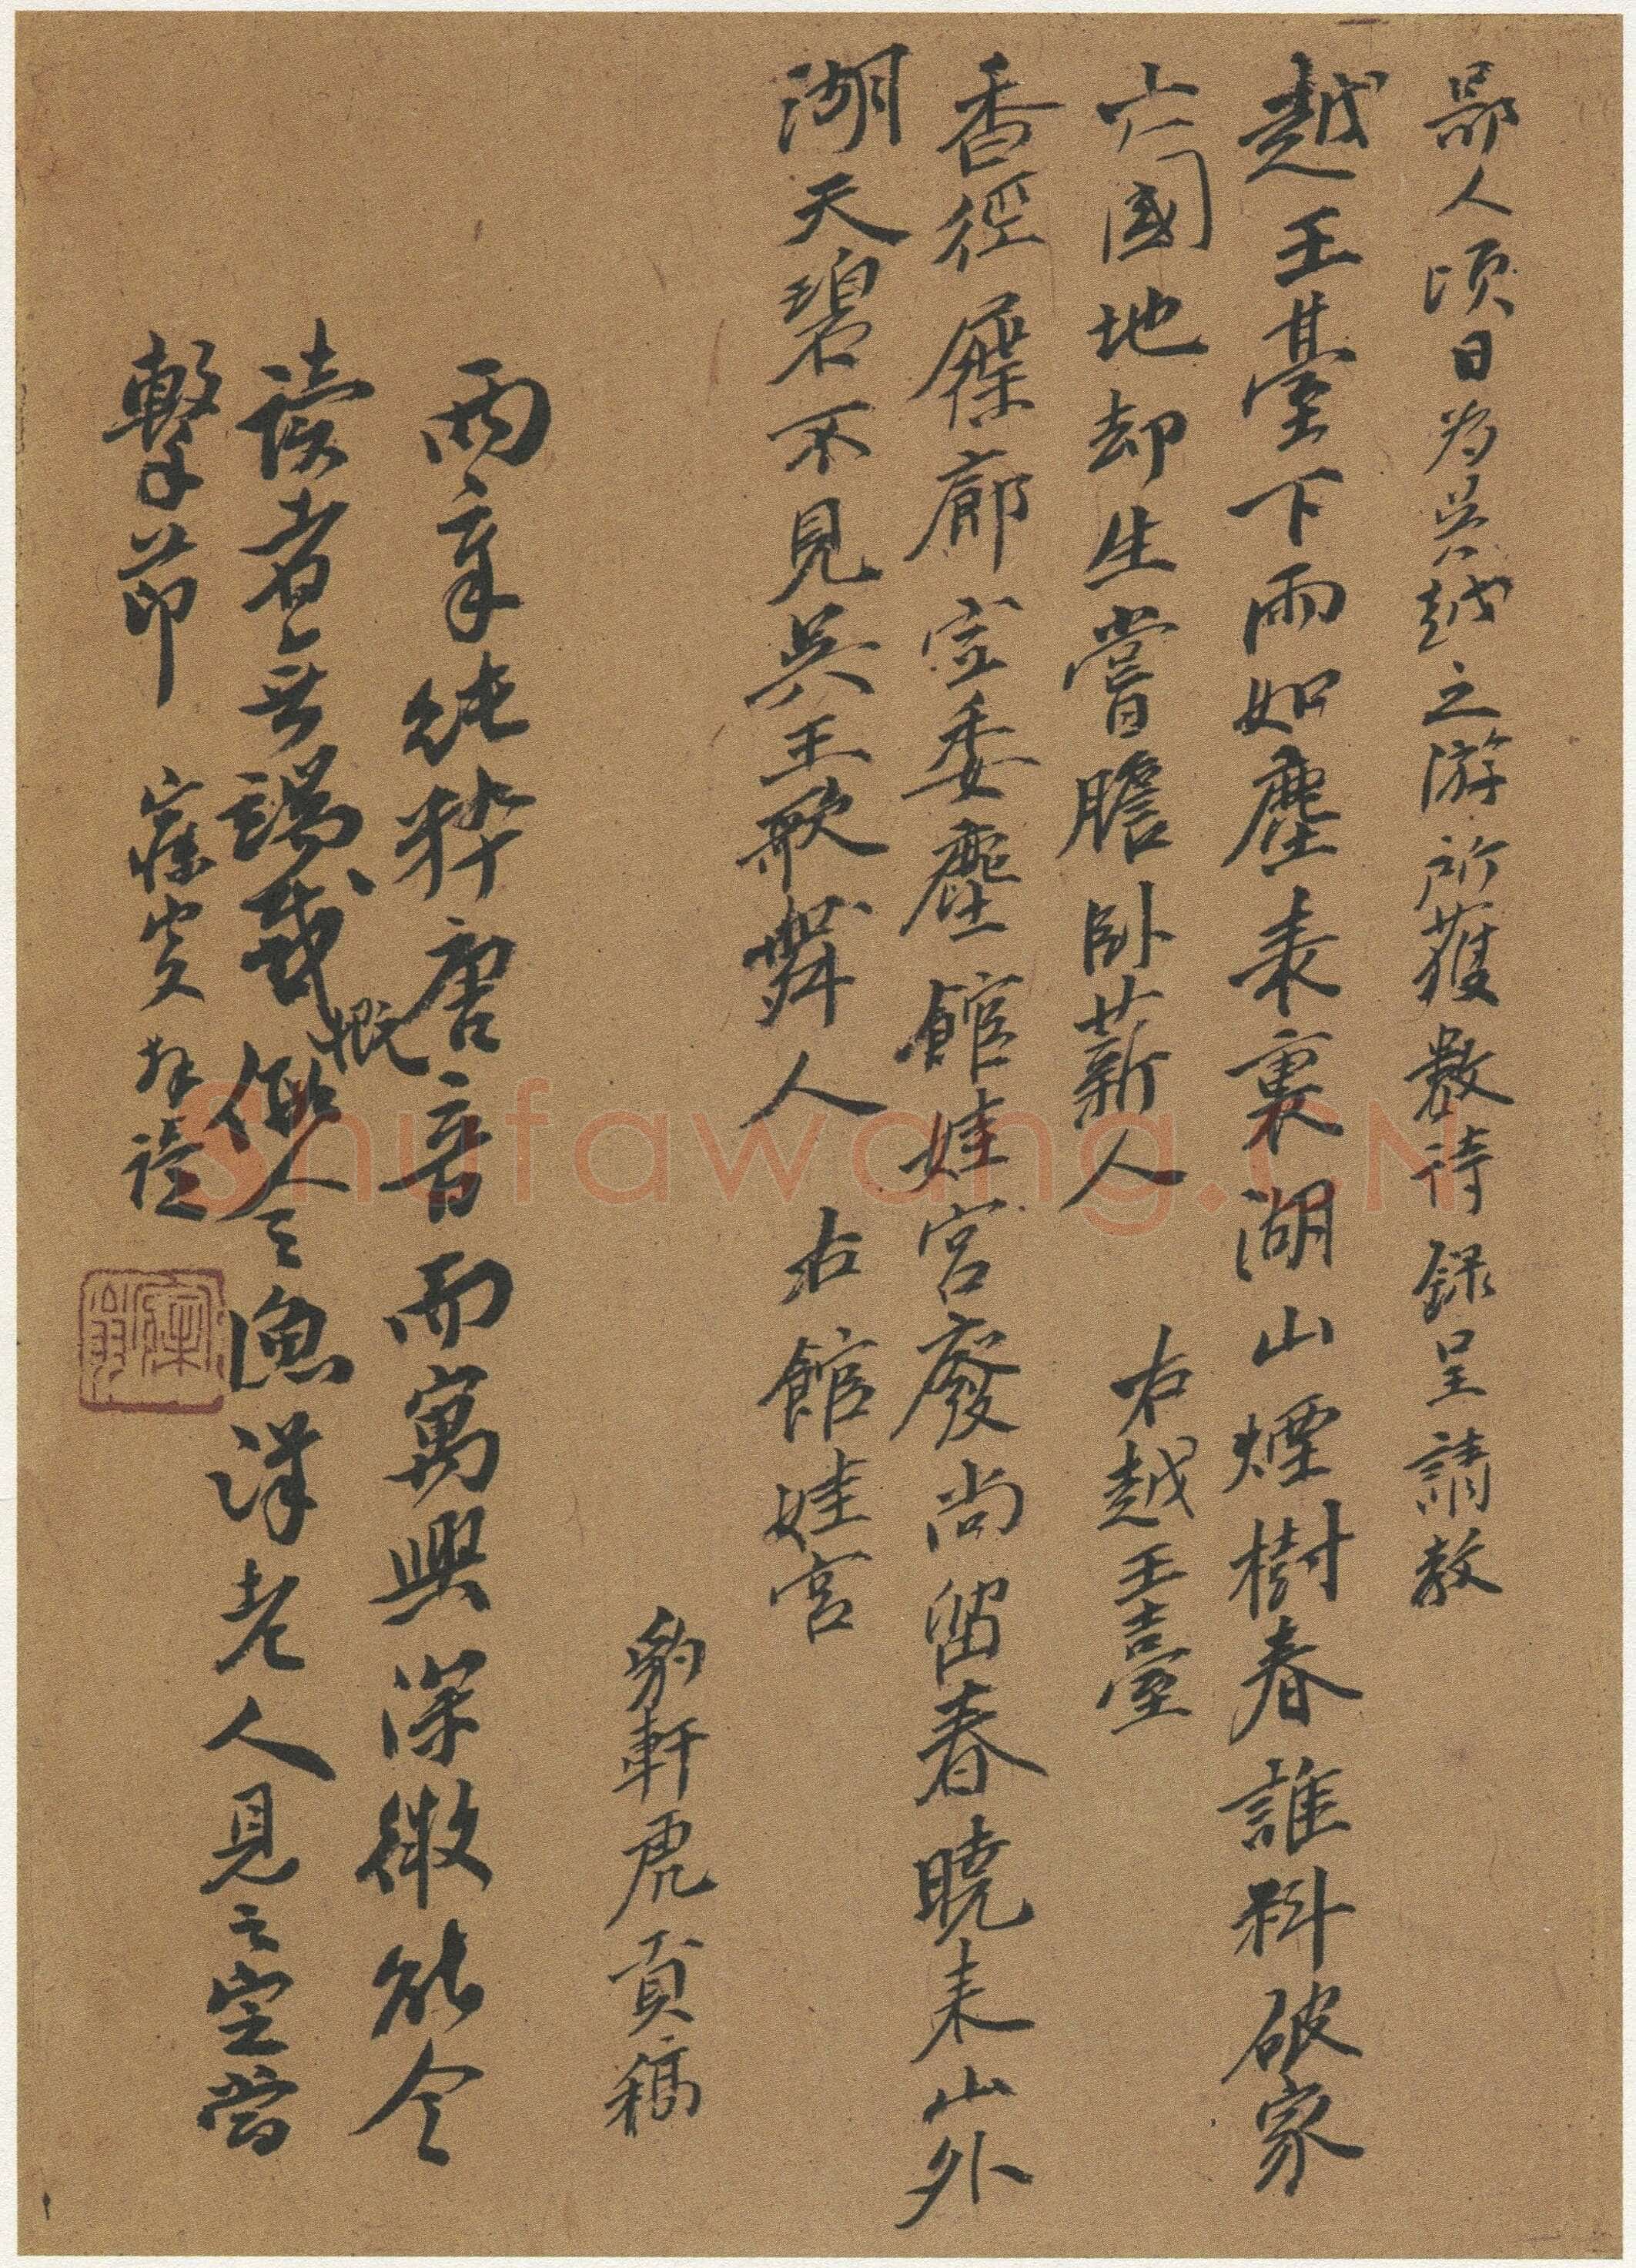 鄙人頃日為吳越之游所獲數詩録呈請教
越王臺下雨如塵表裏湖山煙樹春誰料破家
亡國地却生嘗膽卧薪人 右越王臺
香徑屧廊空委塵館娃宮廢尚留春曉来山外
湖天碧不見吳王歌舞人 右館娃宮
豹軒虎貢稿
兩章純粹唐音而寓興深微能令
读者無端感概俯仰漁洋老人見之定當
擊节 寐叟拜讀
Shufawang.CN